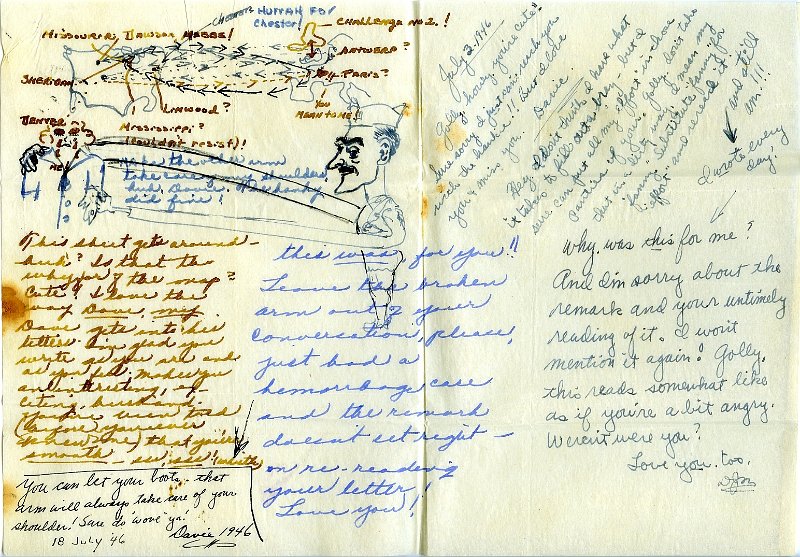 CHESTER HURRAH FOR
Chester!
CHALLENGE NO 2.!
MISSOURIER, DAWSON, MABEE!
ANTWERP?
SHERIDAN
PARIS?
LINWOOD?
YOU
MEAN TO ME!
DENVER
MISSISSIPPI?
(Couldn't resist)!
the other arm
take care of my shoulders
huh, Dave?
did fine!
This sheet gets around –
huh? Is that the
why for of the map?
Cute! I love the
way Dave, my
Dave gets into his
letters. I'm glad you
write as you are and
as you feel. Makes you
an interesting, ex-
citing husband.
you've been told
(before you ever
knew me) that you're
smooth – sir, sir! (whistle)
You can let your boots – that
arm will always take care of your
shoulder! Sure do 'wove' ya!
18 July '46 Davie 1946
this was for you!!
Leave the broken
arm out of your
conversation, please,
just had a
hemorrhage case
and the remark
doesn't set right –
on re-reading
your letter!
Love you!
July 2, 1946 –
Golly, honey, you're cute!
Sure sorry I just can't rush you
with the hankie!! But I love
you & miss you. Davie
Hey, I don't think I have what
it takes to fill out a bra, – but I
sure can put all my effort in those
panties of yours. Golly, don't take
that in a dirty way, I mean my
"fanny". Substitute "fanny" for
"effort" and reread it
and still
am!!!
I wrote every
day!
Why, was this for me?
And I'm sorry about the
remark and your untimely
reading of it. I won't
mention it again! Golly,
this reads somewhat like
as if you're a bit angry.
Weren't were you?
Love you, too,